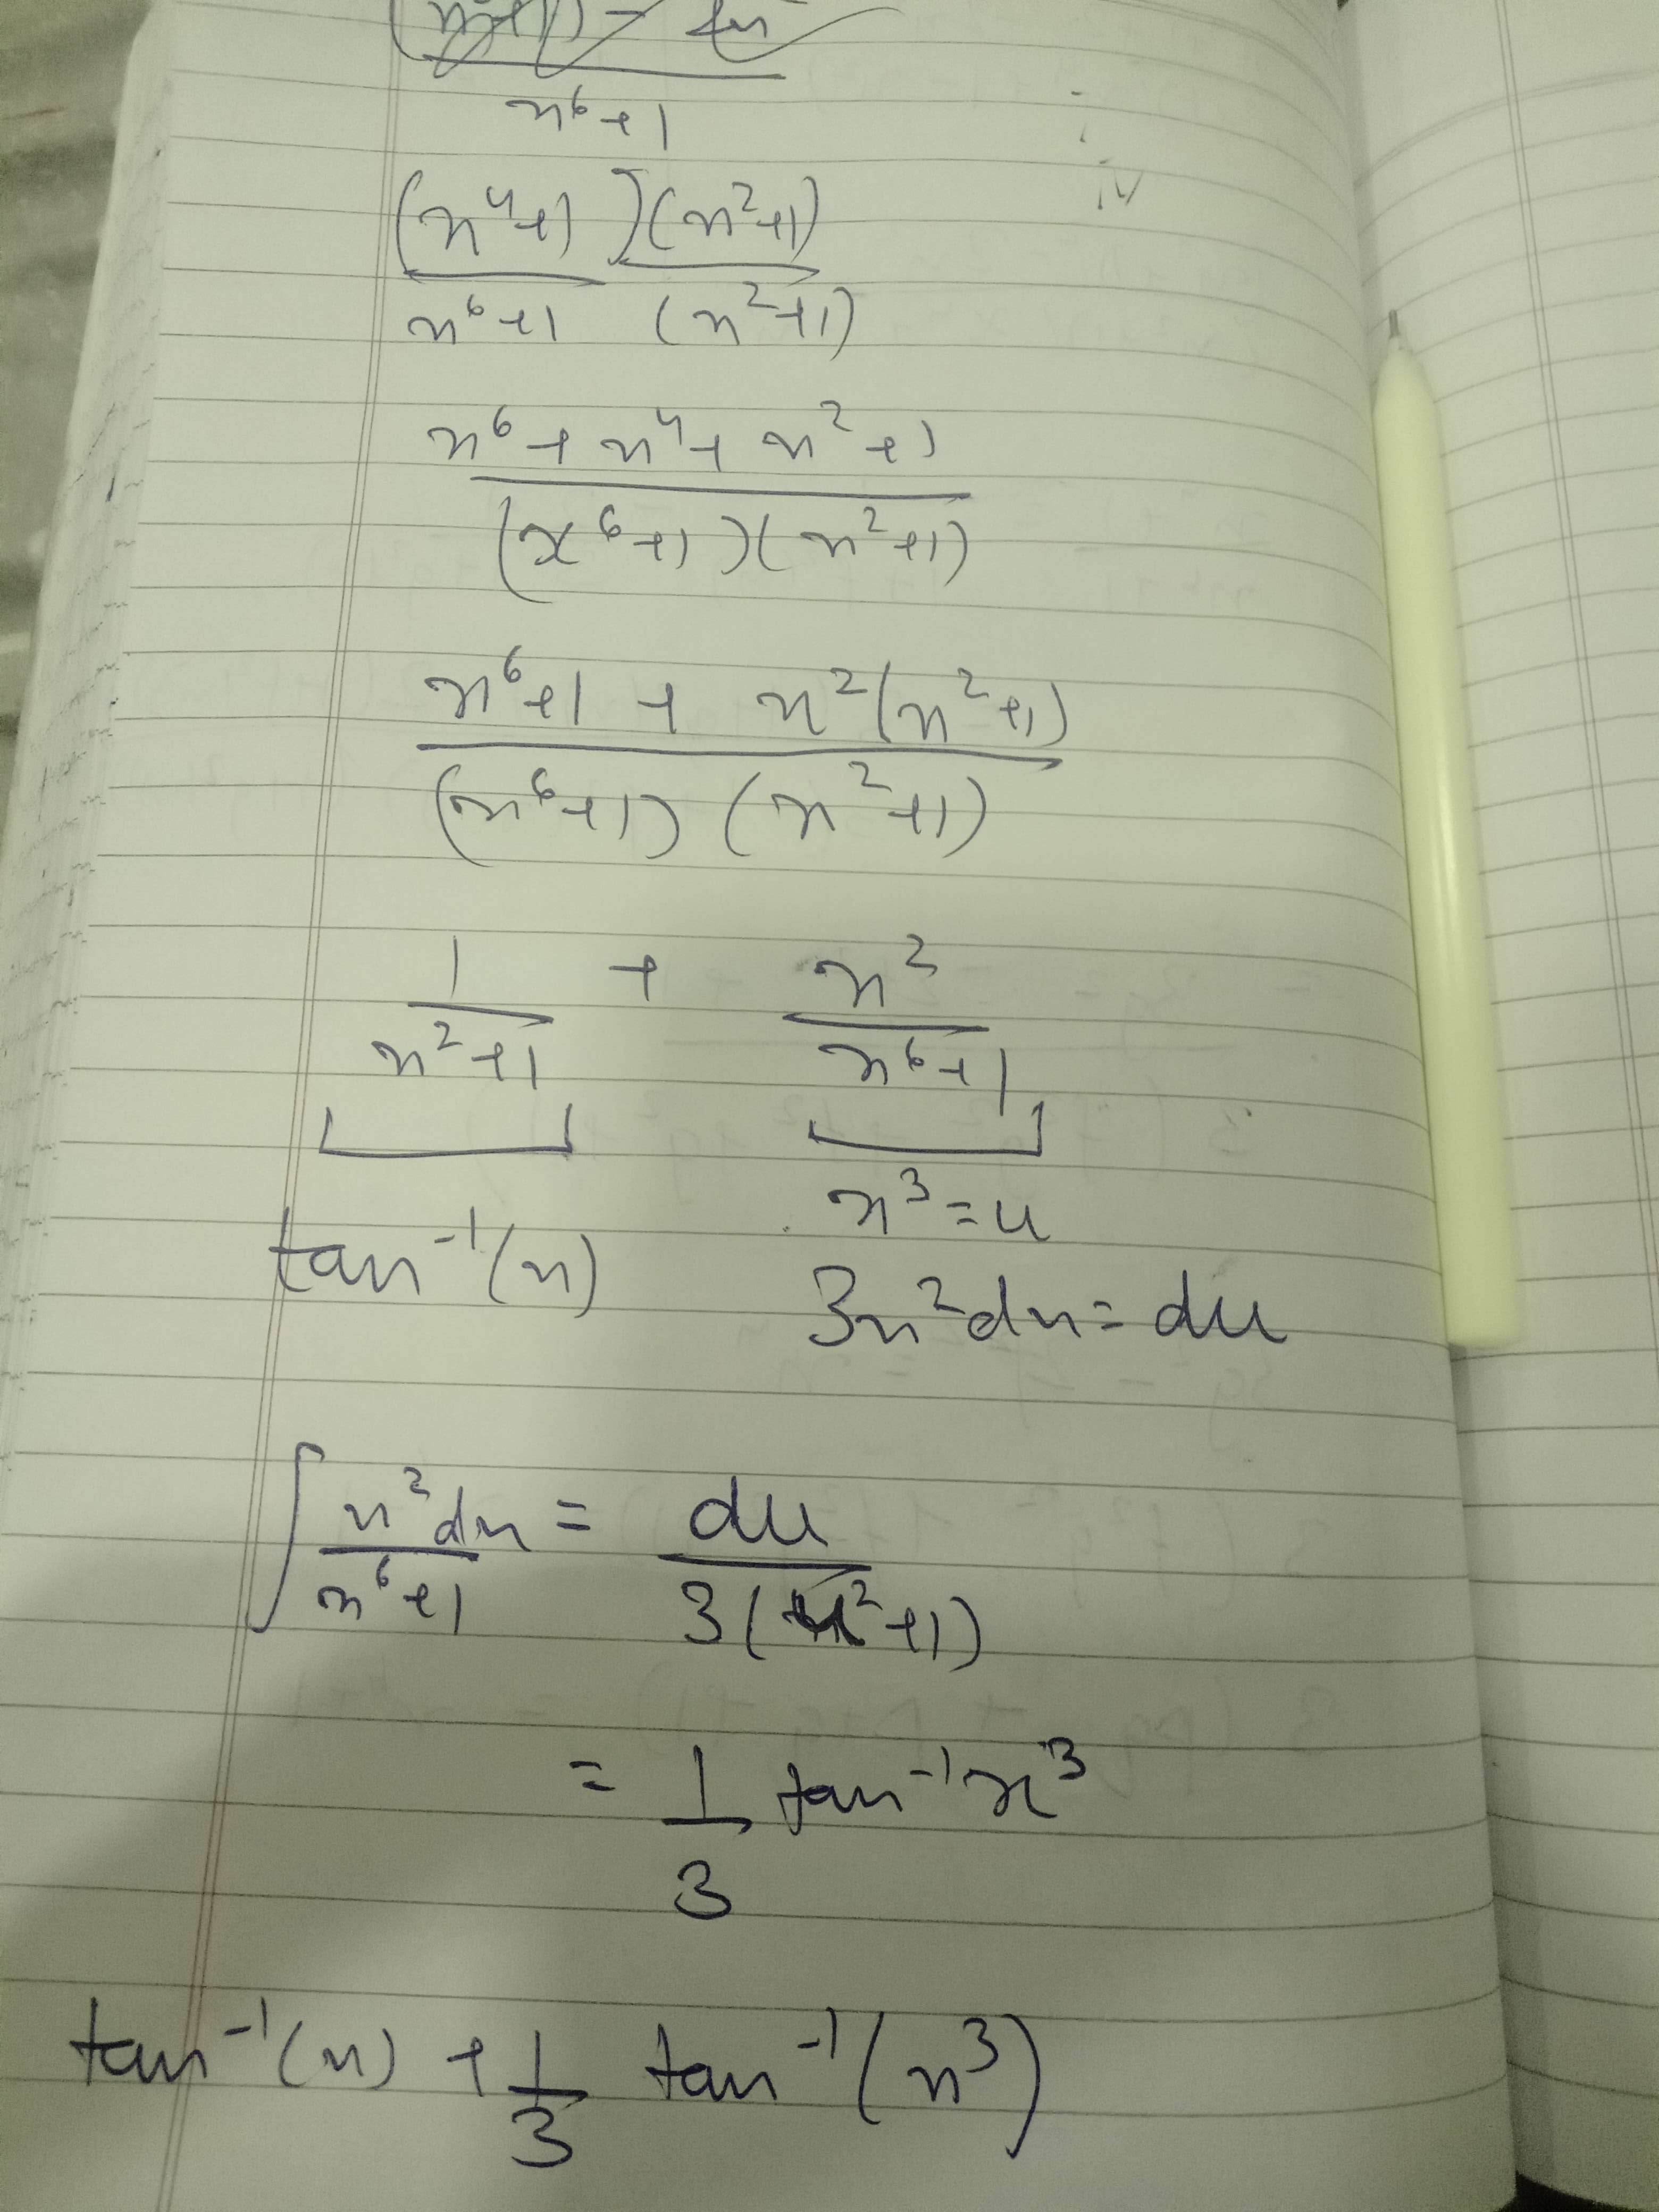 x⁶+1
(x⁴+1)(x²+1)
x⁶+1 (x²+1)
x⁶+x⁴+x²+1
(x⁶+1)(x²+1)
x⁶+1 + x²(x²+1)
(x⁶+1)(x²+1)
1 + x²
x²+1 x⁶+1
x³=u
tan⁻¹(x)
3x²dx=du
∫ x²dx = du
x⁶+1 3(u²+1)
= 1 tan⁻¹x³
3
tan⁻¹(x) + 1 tan⁻¹(x³)
3